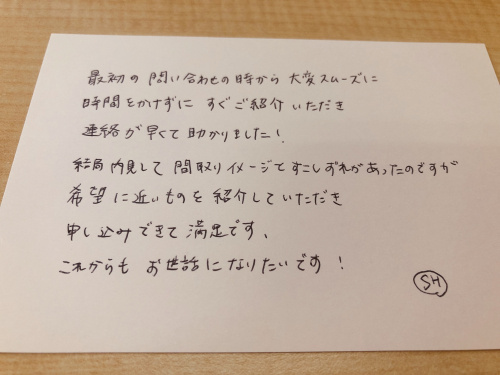 最初の問い合わせの時から大変スムーズに
時間をかけずにすぐご紹介いただき
連絡が早くて助かりました！
結局内見して間取りイメージとすこしずれがあったのですが
希望に近いものを紹介していただき
申し込みできて満足です、
これからもお世話になりたいです！
SH